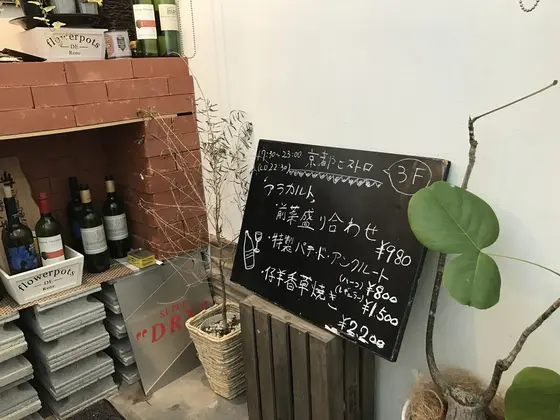 flowerpots
DE
Rome
17:30~23:00 京都ビストロ
(L.O 22:30)
3F
アラカルト
・前菜盛り合わせ
¥980
・特製パテ・ド・アンクルート
(ハーフ) ¥800
(レギュラー) ¥1,500
・仔羊香草焼き
¥2,200
flowerpots
DE
SUPER
DRY